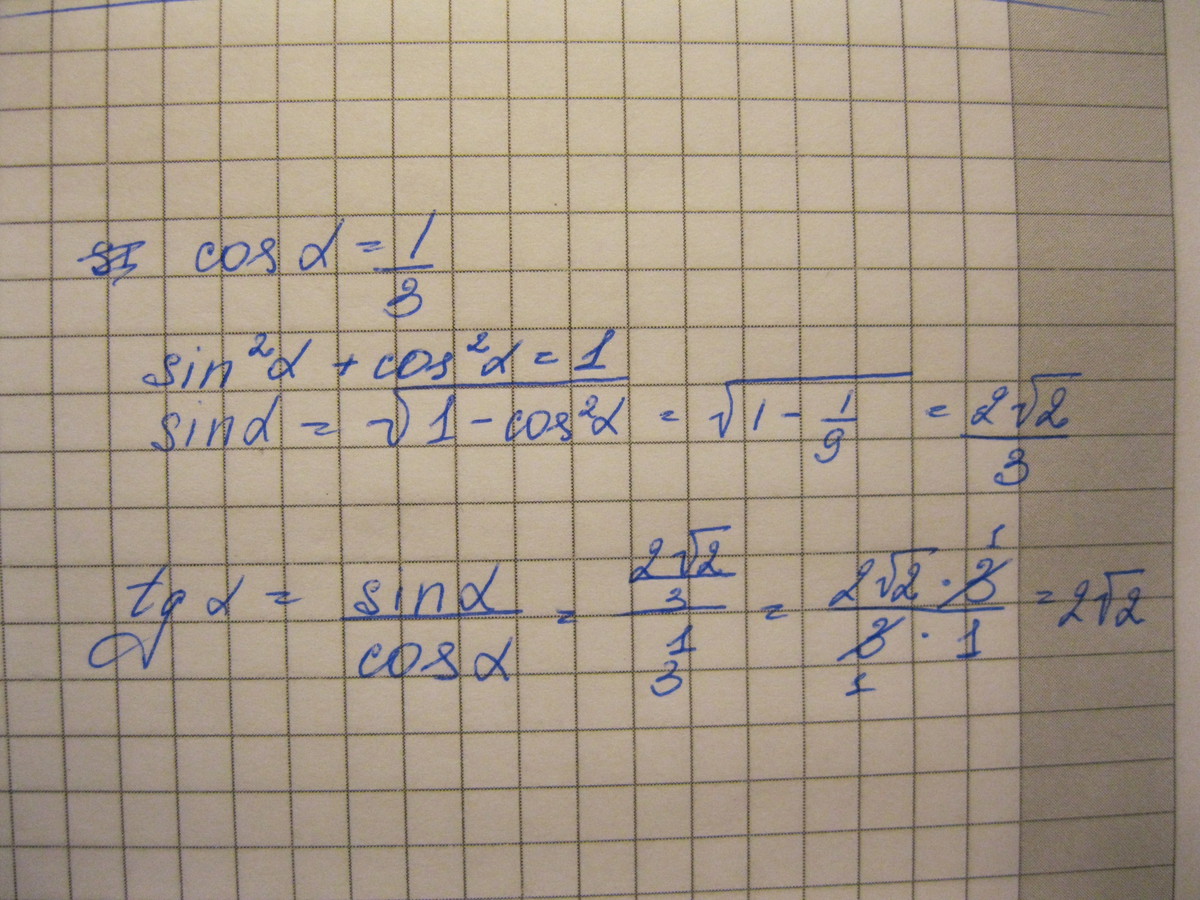 cos α = 1/3
sin²α + cos²α = 1
sinα = √(1 - cos²α) = √(1 - 1/9) = 2√2/3
tg α = sinα/cosα = (2√2/3)/(1/3) = (2√2 · 3)/(3 · 1) = 2√2